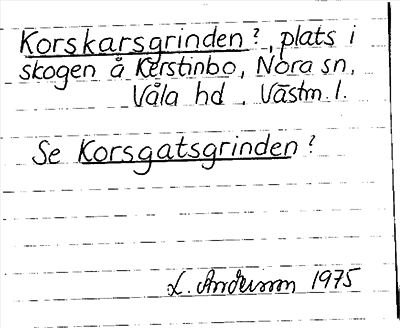 Korskarsgrinden?, plats i
skogen å Kerstinbo, Nora sn,
Våla hd. Västm. l.
Se Korsgatsgrinden?
L. Andersson 1975